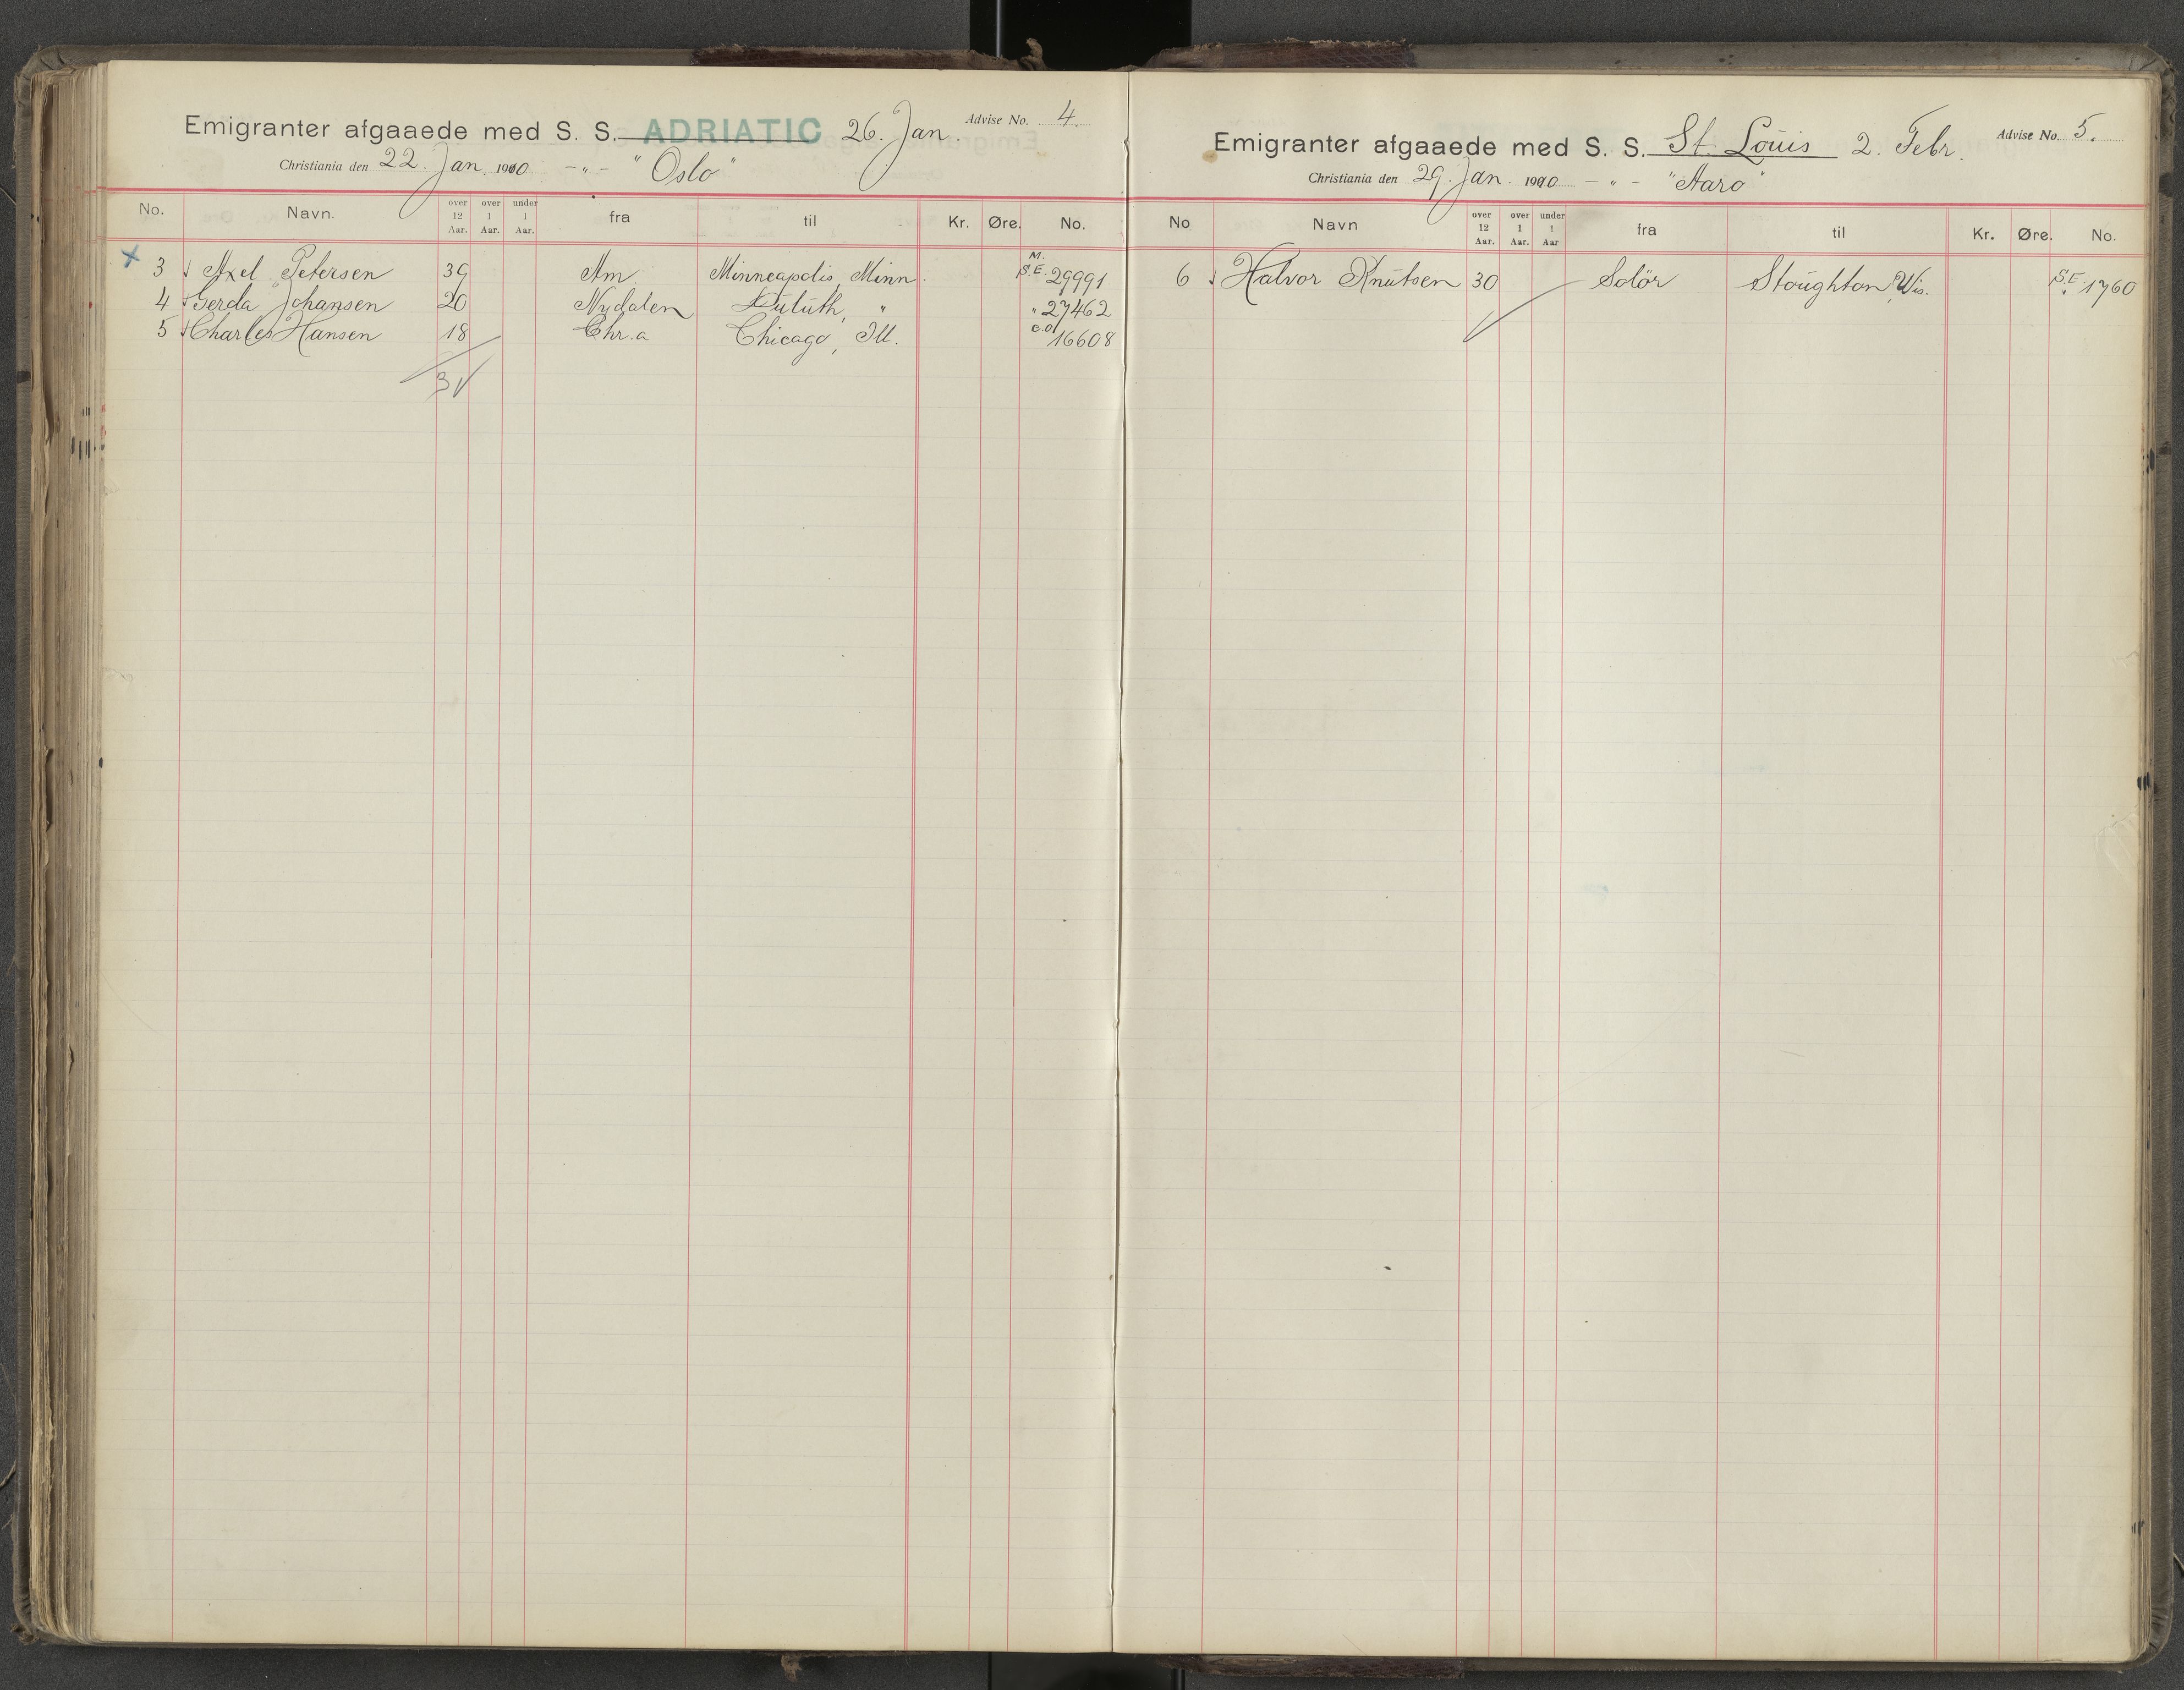 Emigranter afgaaede med S. S. ADRIATIC 26. Jan. Advise No. 4.
Christiania den 22. Jan. 1910 -„- "Oslo"
No. Navn. over 12 Aar. over 1 Aar. under 1 Aar. fra til Kr. Øre. No.
3 Axel Petersen 39 Am Minneapolis, Minn. M. S.E. 29991
4 Gerda Johansen 20 Nydalen Duluth, „ „ 27462
5 Charles Hansen 18 Chr.a Chicago, Ill. C.O. 16608
3
Emigranter afgaaede med S. S. St. Louis 2. Febr. Advise No. 5.
Christiania den 29. Jan. 1910 - „ - "Aaro"
No Navn over 12 Aar. over 1 Aar. under 1 Aar fra til Kr. Øre. No.
6 Halvor Knutsen 30 Solör Stoughton, Wis. S.E. 1760